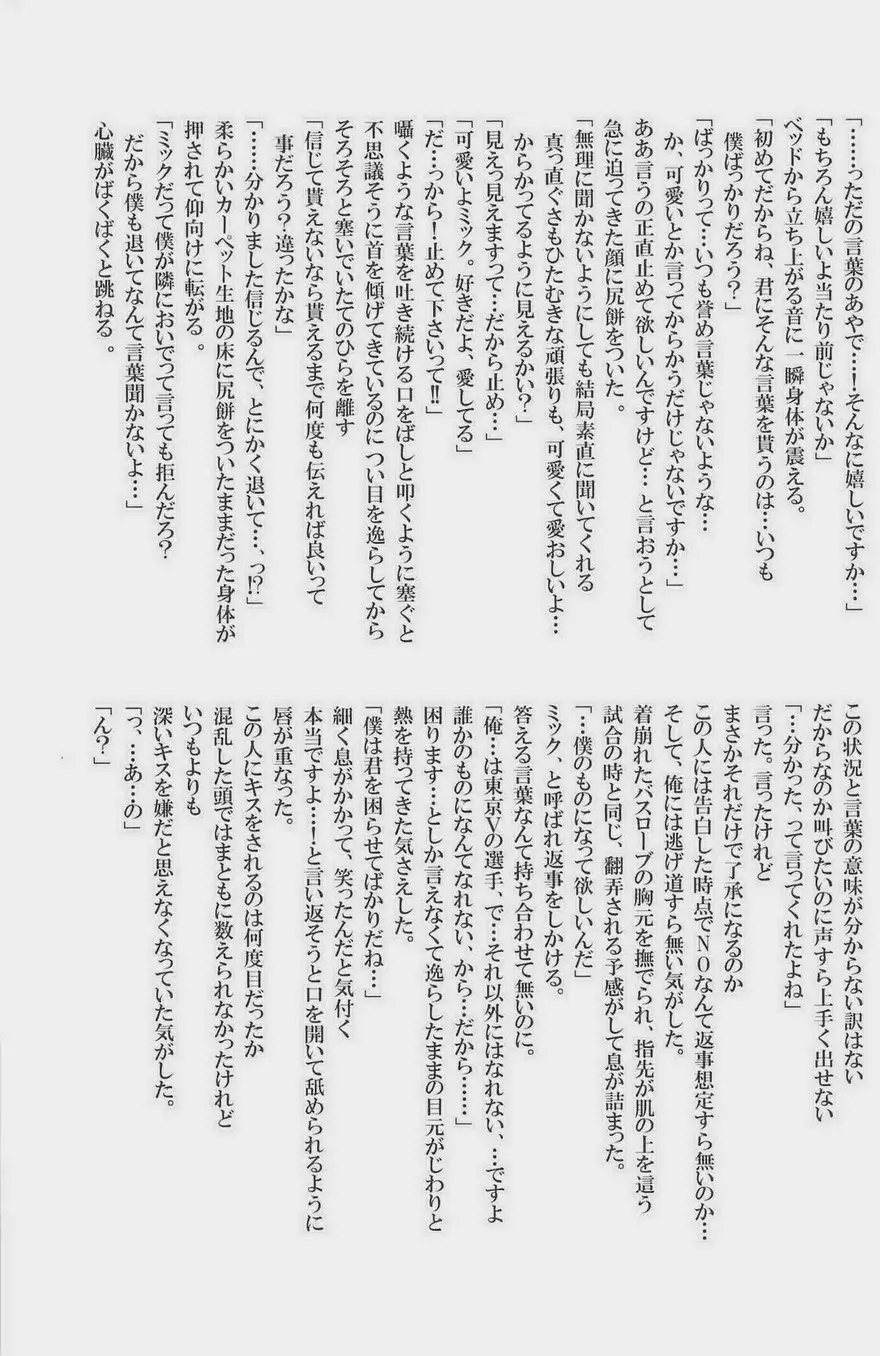 「……っただの言葉のあやで…！そんなに嬉しいですか…」
「もちろん嬉しいよ当たり前じゃないか」
ベッドから立ち上がる音に一瞬身体が震える。
「初めてだからね、君にそんな言葉を貰うのは…いつも
僕ばっかりだろう？」
「ばっかりって…いつも誉め言葉じゃないような…
か、可愛いとか言ってからかうだけじゃないですか…」
ああ言うの正直止めて欲しいんですけど…と言おうとして
急に迫ってきた顔に尻餅をついた。
「無理に聞かないようにしても結局素直に聞いてくれる
真っ直ぐさもひたむきな頑張りも、可愛くて愛おしいよ…
からかってるように見えるかい？」
「見えっ見えますって…だから止め…」
「可愛いよミック。好きだよ、愛してる」
「だ…っから！止めて下さいって‼」
囁くような言葉を吐き続ける口をばしと叩くように塞ぐと
不思議そうに首を傾げてきているのについ目を逸らしてから
そろそろと塞いでいたてのひらを離す
「信じて貰えないなら貰えるまで何度も伝えれば良いって
事だろう？違ったかな」
「……分かりました信じるんで、とにかく退いて…、っ⁉」
柔らかいカーペット生地の床に尻餅をついたままだった身体が
押されて仰向けに転がる。
「ミックだって僕が隣においでって言っても拒んだろ？
だから僕も退いてなんて言葉聞かないよ…」
心臓がばくばくと跳ねる。
この状況と言葉の意味が分からない訳はない
だからなのか叫びたいのに声すら上手く出せない
「…分かった、って言ってくれたよね」
言った。言ったけれど
まさかそれだけで了承になるのか
この人には告白した時点でＮＯなんて返事想定すら無いのか…
そして、俺には逃げ道すら無い気がした。
着崩れたバスローブの胸元を撫でられ、指先が肌の上を這う
試合の時と同じ、翻弄される予感がして息が詰まった。
「…僕のものになって欲しいんだ」
ミック、と呼ばれ返事をしかける。
答える言葉なんて持ち合わせて無いのに。
「俺…は東京Ｖの選手、で…それ以外にはなれない、…ですよ
誰かのものになんてなれない、から…だから……」
困ります…としか言えなくて逸らしたままの目元がじわりと
熱を持ってきた気さえした。
「僕は君を困らせてばかりだね…」
細く息がかかって、笑ったんだと気付く
本当ですよ…！と言い返そうと口を開いて舐められるように
唇が重なった。
この人にキスをされるのは何度目だったか
混乱した頭ではまともに数えられなかったけれど
いつもよりも
深いキスを嫌だと思えなくなっていた気がした。
「っ、…あ…の」
「ん？」